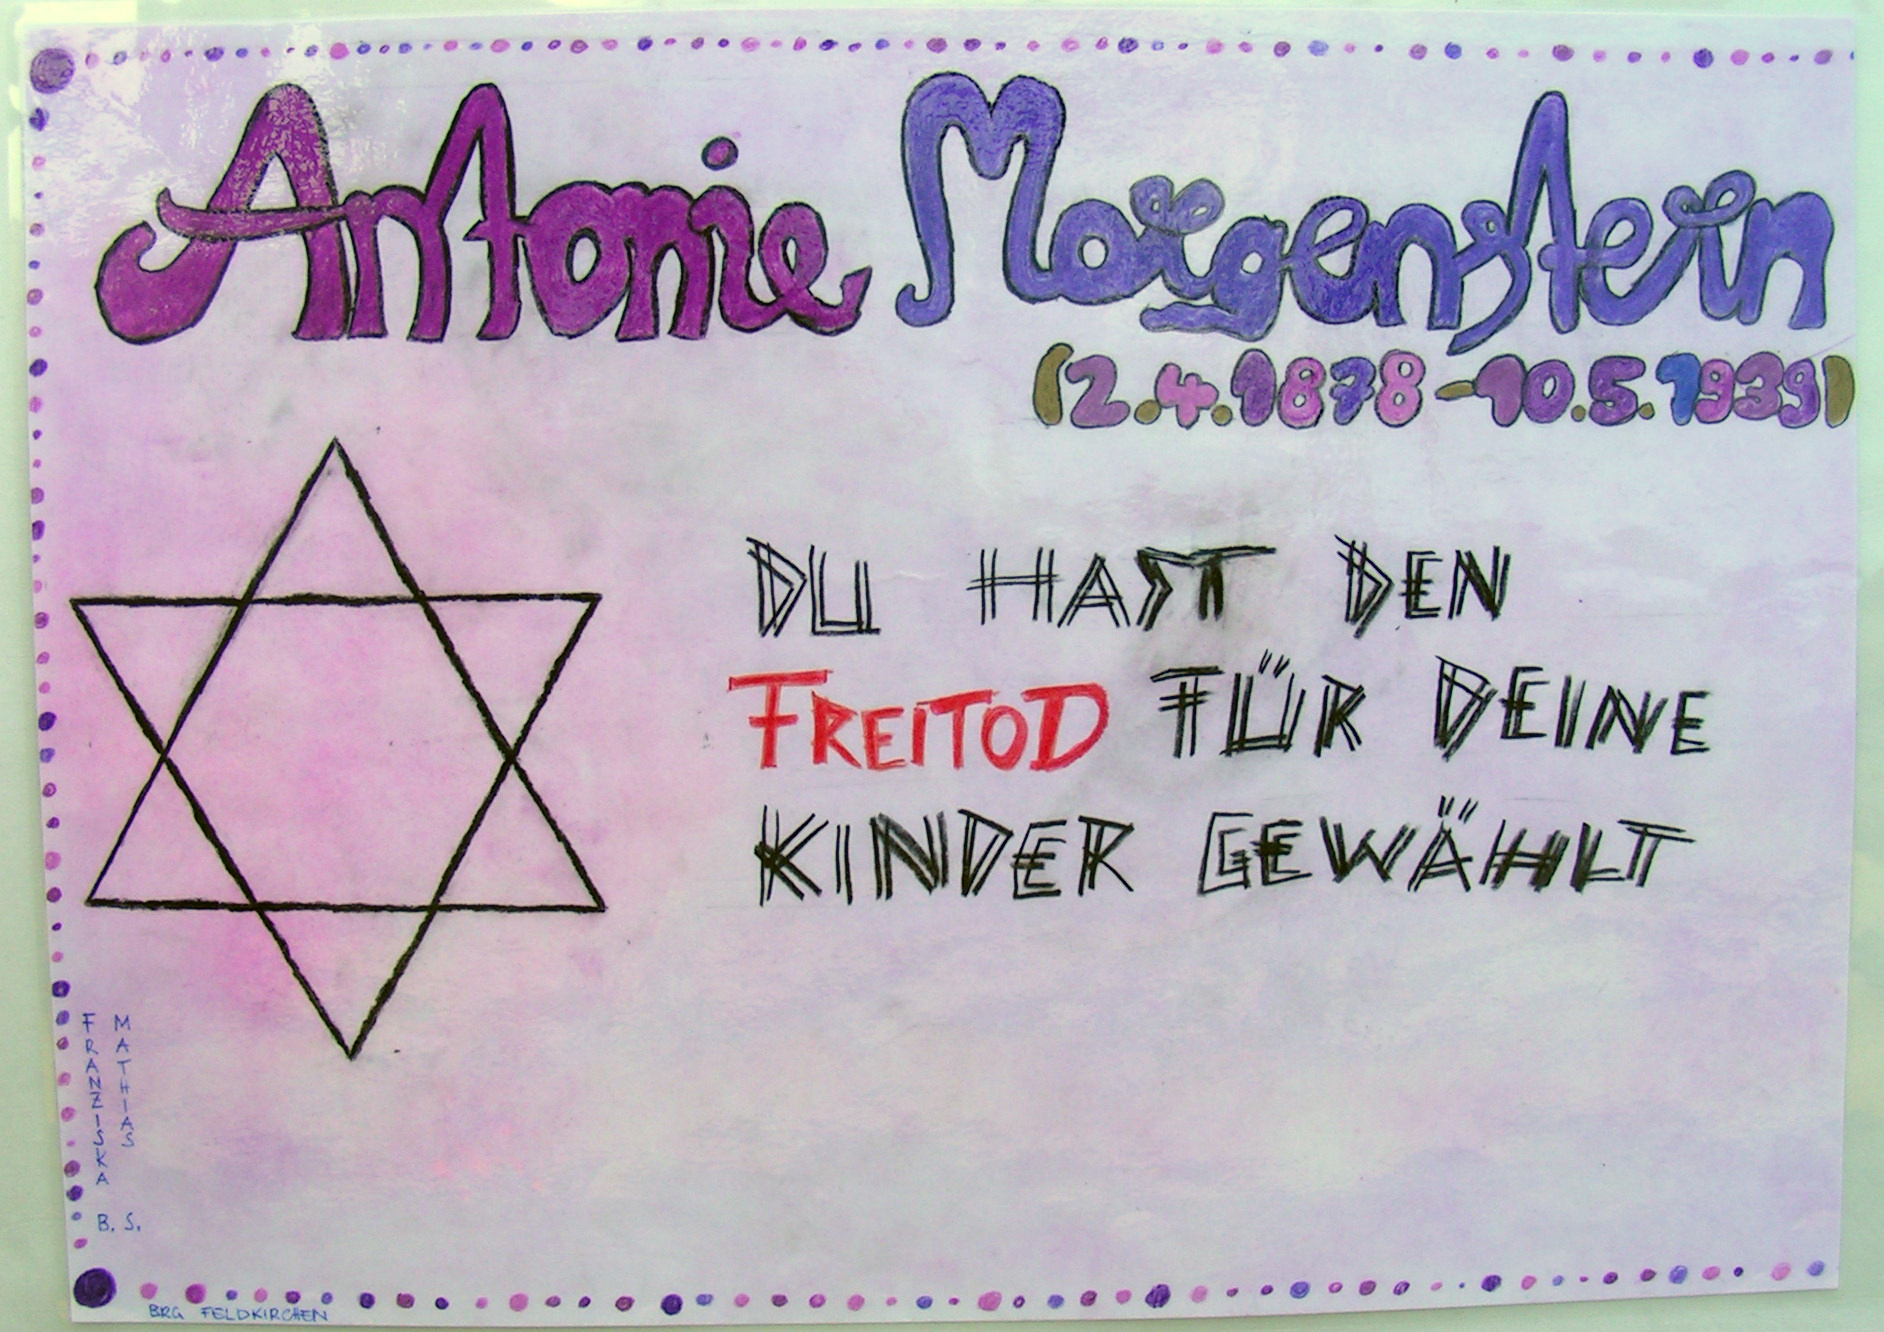 Antonie Morgenstern
(2.4.1878 - 10.5.1939)
DU HAST DEN
FREITOD FÜR DEINE
KINDER GEWÄHLT
FRANZISKA B.
MATHIAS S.
BRG FELDKIRCHEN